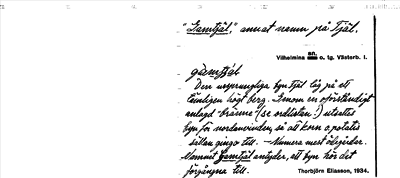 "Gamtjäl," annat namn på Tjäl.
Vilhelmina sn. o. tg. Västerb. l.
gàemtjàl
Den ursprungliga byn Tjäl låg på ett
tämligen högt berg. Genom en oförståndigt
anlagd bränna (se ordlistan!) utsattes
byn för nordanvinden, så att korn o. potatis
sällan gingo till. — Numera mest ödegårdar.
Namnet Gamtjäl antyder, att byn hör det
förgångna till.
Thorbjörn Eliasson, 1934.